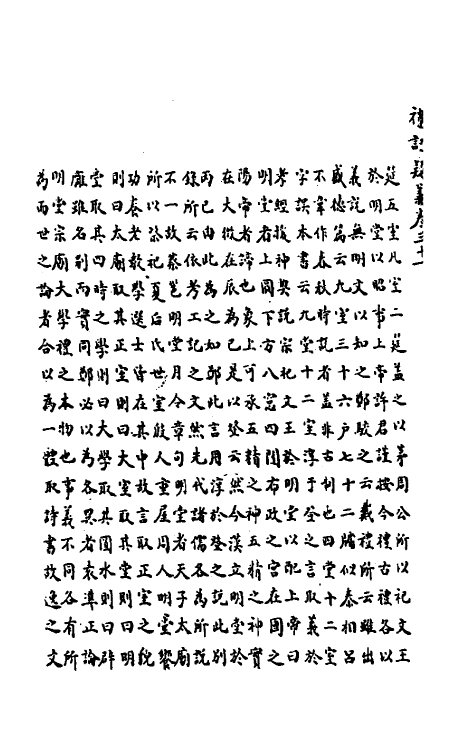 禮記疑義卷三十一
筵五室凡室二筵蓋之以茅周公所以祀文王
於明堂以昭事上帝許君謹按今禮古禮各以
義說無明文以知之鄭駮之云戴禮所云雖出
盛德篇云九室三十六户七十二牖似秦相呂
不韋作春秋時說者蓋非古制也四堂十二室
字誤本書云九堂十二室淳于登之言取義於
孝經援神契說宗祀文王於明堂以配上帝曰
明堂者上圓下方八窓四闥布政之宮在國之
陽帝者諦也象上可承五精之神五精之神實
在太微在辰為巳是以登云然今漢立明堂於
丙巳由此為之如鄭此言用淳于登之說此別
餘已云依考工記之文然先代諸儒各為所說
不一故蔡邕明堂月令章句明堂者天子太廟
所以祭祀夏后氏世室殷人重屋周人明堂饗
功養老教學選士皆在其中故言取正室之貌
則曰太廟取其正室則曰大室取其堂則曰明
堂取其四時學則曰大學取其圓水則曰辟
廱雖名別而實同鄭必以為各異者袁準正論
明堂宗廟大學禮之本物也事義不同各有所
為而世之論者合以為一體取詩書放逸之文